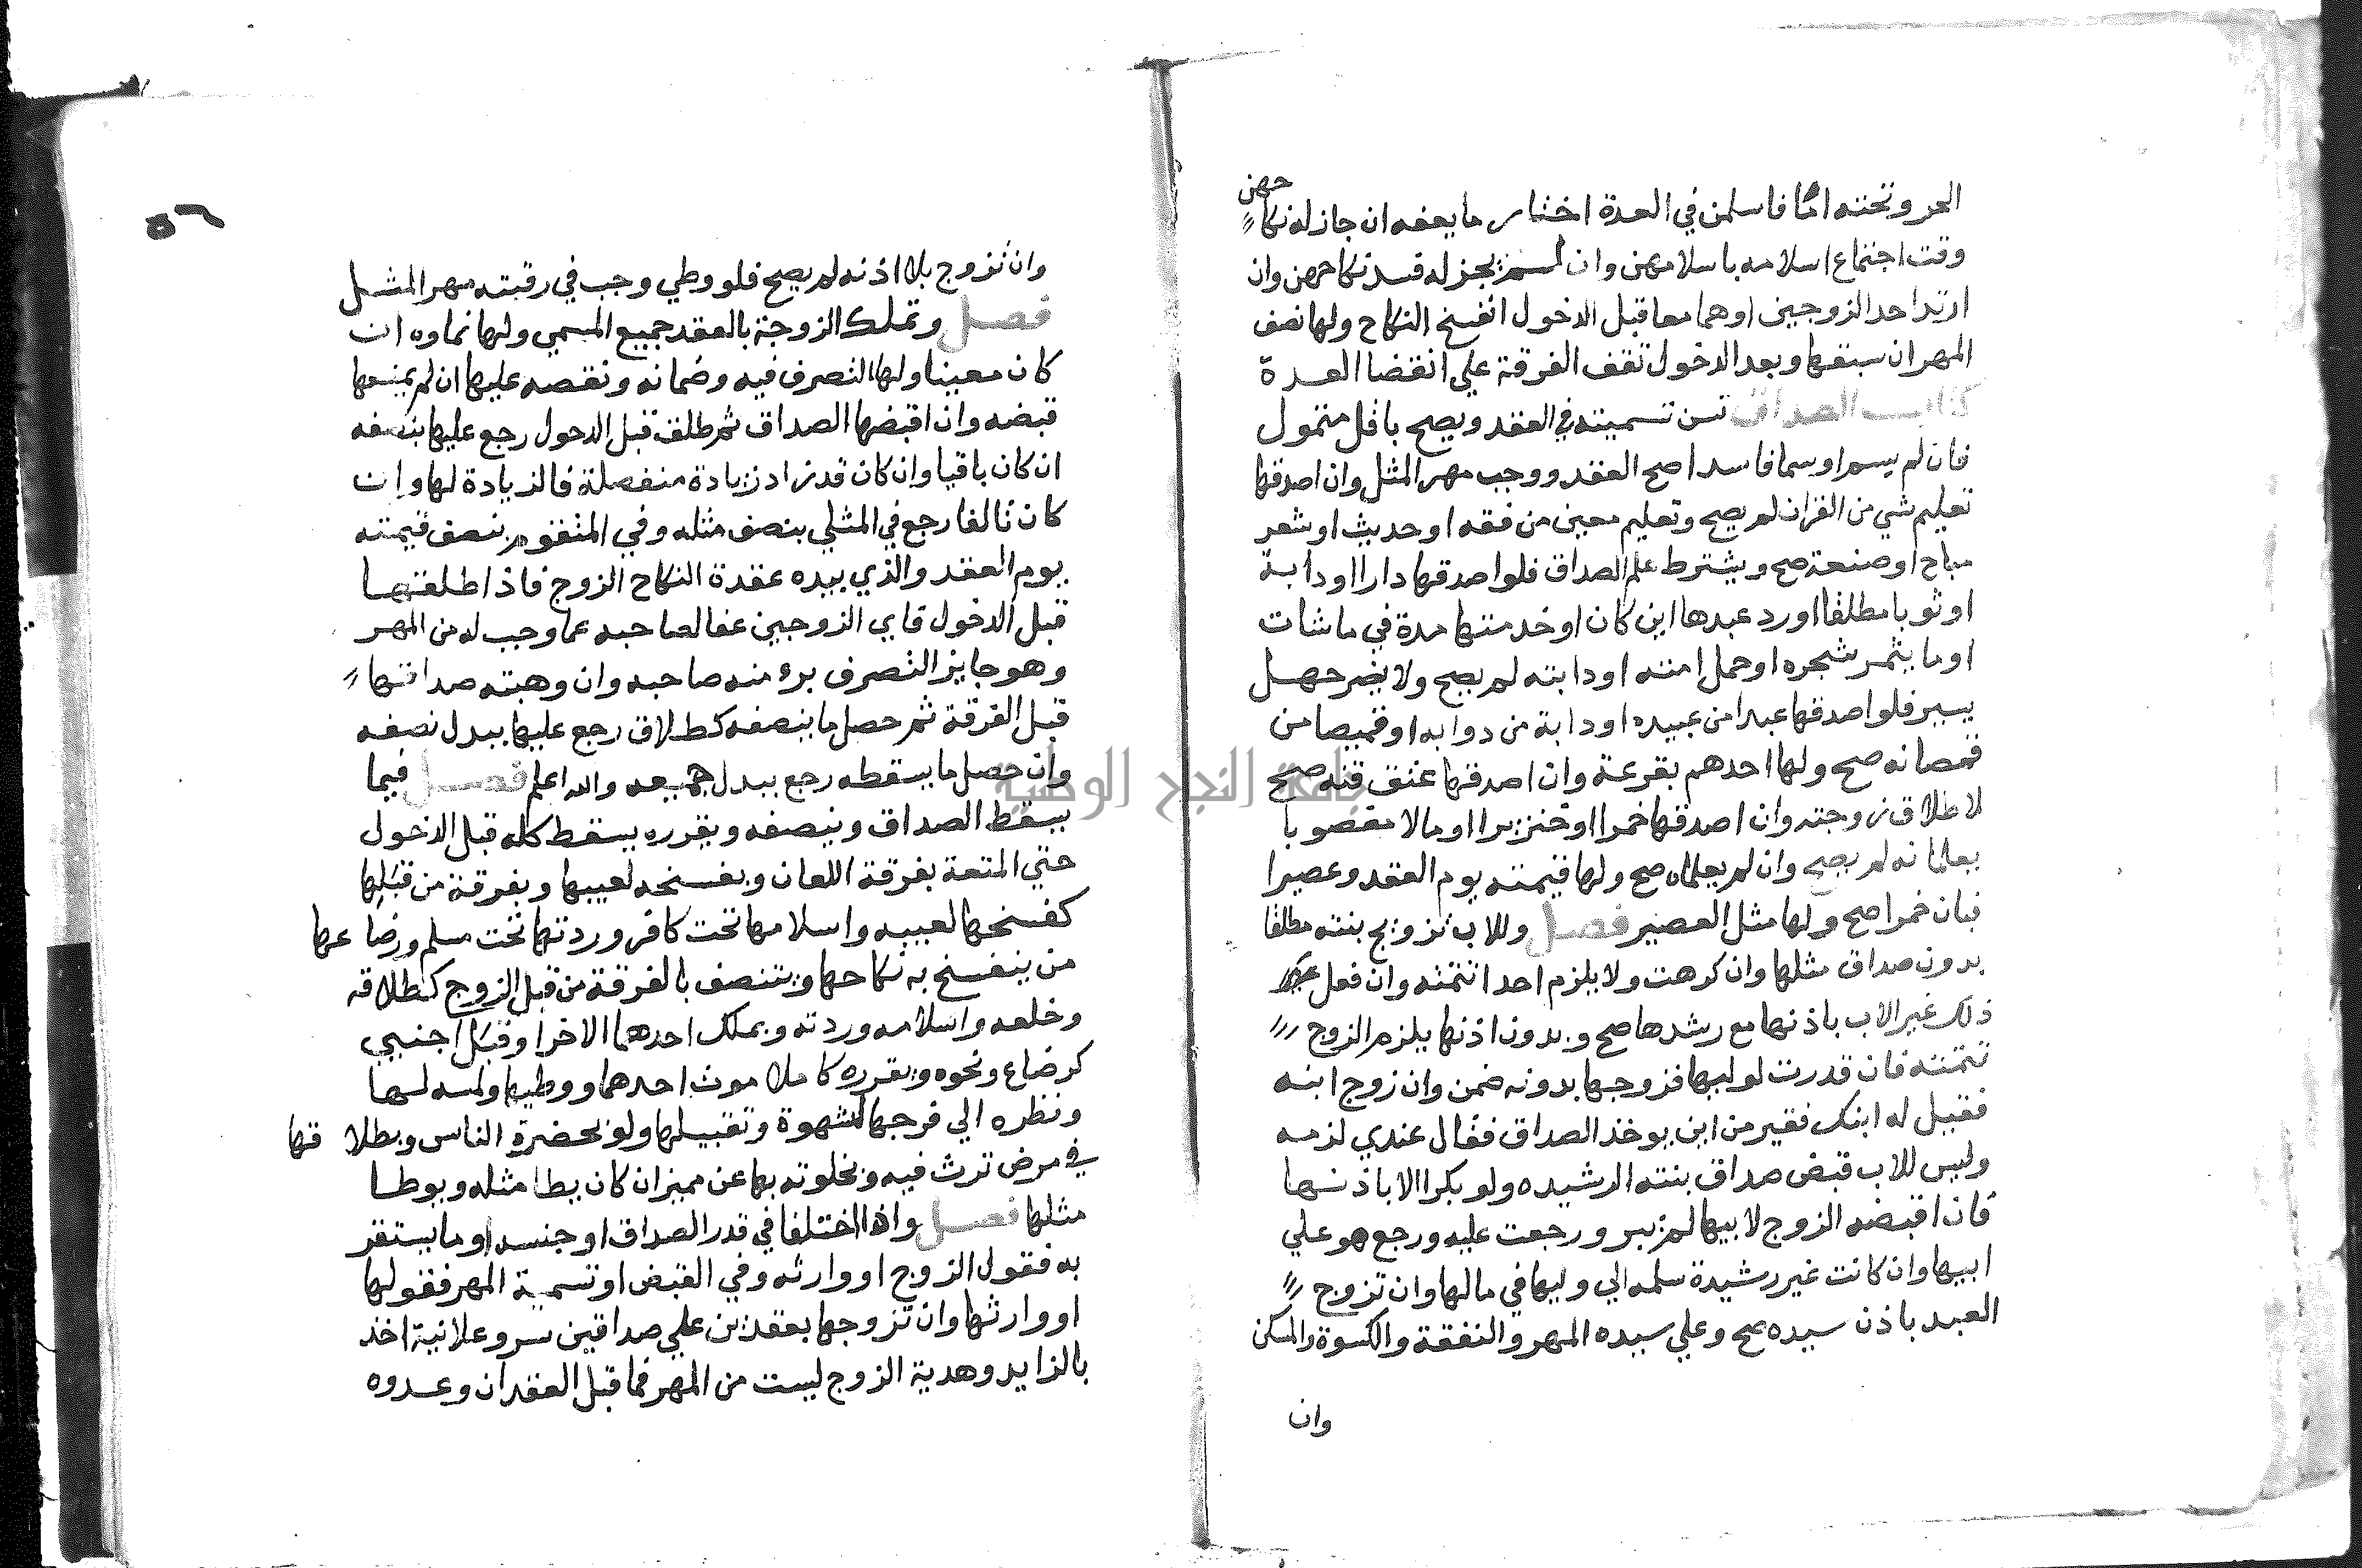 الحر وتحته اماً فاسلمن في العدة اختار ما يعفه ان جاز له نكا
حهن
وقت اجتماع اسلامه باسلامهن وان لم يجز له فسد نكاحهن وان
ارتد احد الزوجين او هما معا قبل الدخول انفسخ النكاح ولها نصف
المهر ان سبقها وبعد الدخول تقف الفرقة علي انقضا العدة
كتاب الصداق تسن تسميته في العقد ويصح باقل متمول
فان لم يسم او سما فاسدا صح العقد ووجب مهر المثل وان اصدقها
تعليم شي من القران لم يصح وتعليم معين من فقه او حديث او شعر
مباح او صنعة صح ويشترط علم الصداق فلو اصدقها دارا او دابة
او ثوبا مطلقا او رد عبدها اين كان او خدمتها مدة في ما شات
او ما يثمر شجره او حمل امته او دابته لم يصح ولا يضر جهل
يسير فلو اصدقها عبدا من عبيده او دابة من دوابه او قميصا من
قمصانه صح ولها احدهم بقرعة وان اصدقها عتق قنه صح
لا طلاق زوجته وان اصدقها خمرا او خنزيرا او مالا مغصوبا
يعلمانه لم يصح وان لم يعلماه صح ولها قيمته يوم العقد وعصيرا
فبان خمرا صح ولها مثل العصير فصل وللاب تزويج بنته مطلقا
بدون صداق مثلها وان كرهت ولا يلزم احدا تتمته وان فعل
ذلك غير الاب باذنها مع رشدها صح وبدون اذنها يلزم الزوج
تتمته فان قدرت لوليها فزوجها بدونه ضمن وان زوج ابنه
فقيل له ابنك فقير من اين يوخذ الصداق فقال عندي لزمه
وليس للاب قبض صداق بنته الرشيده ولو بكرا الا باذنها
فان اقبضه الزوج لابيها لم يبر ورجعت عليه ورجع هو علي
ابيها وان كانت غير رشيدة سلمه الي وليها في مالها وان تزوج
العبد باذن سيده صح وعلي سيده المهر والنفقة والكسوة والمسكن
وان
٥٦
وان تزوج بلا اذنه لم يصح فلو وطي وجب في رقبته مهر المثل
فصل وتملك الزوجة بالعقد جميع المسمي ولها نماوه ان
كان معينا ولها التصرف فيه وضمانه ونقصه عليها ان لم يمنعها
قبضه وان اقبضها الصداق ثم طلق قبل الدخول رجع عليها بنصفه
ان كان باقيا وان كان قد زاد زيادة منفصلة فالزيادة لها وان
كان تالفا رجع في المثلي بنصف مثله وفي المتقوم بنصف قيمته
يوم العقد والذي بيده عقدة النكاح الزوج فاذا طلقها
قبل الدخول فاي الزوجين عفا لصاحبه عما وجب له من المهر
وهو جايز التصرف برء منه صاحبه وان وهبته صداقها
قبل الفرقة ثم حصل ما ينصفه كطلاق رجع عليها ببدل نصفه
وان حصل ما يسقطه رجع ببدل جميعه والله اعلم فصل فيما
يسقط الصداق وينصفه ويقرره يسقط كله قبل الدخول
حتي المتعة بفرقة اللعان وبفسخه لعيبها وبفرقة من قبلها
كفسخها لعيبه واسلامها تحت كافر وردتها تحت مسلم ورضاعها
من ينفسخ به نكاحها ويتنصف بالفرقة من قبل الزوج كطلاقه
وخلعه واسلامه وردته وبملك احدهما الاخر او قبل اجنبي
كرضاع ونحوه ويقرره كاملا موت احدهما ووطيها ولمسه لها
ونظره الي فرجها لشهوة وتقبيلها ولو بحضرة الناس وبطلاقها
في مرض ترث فيه وبخلوته بها عن مميز ان كان يطا مثله ويوطا
مثلها فصل واذا اختلفا في قدر الصداق او جنسه او ما يستقر
به فقول الزوج او وارثه وفي القبض او تسمية المهر فقولها
او وارثها وان تزوجها بعقدين علي صداقين سر وعلانية اخذ
بالزايد وهدية الزوج ليست من المهر فما قبل العقد ان وعدوه
جامعة النجاح الوطنية